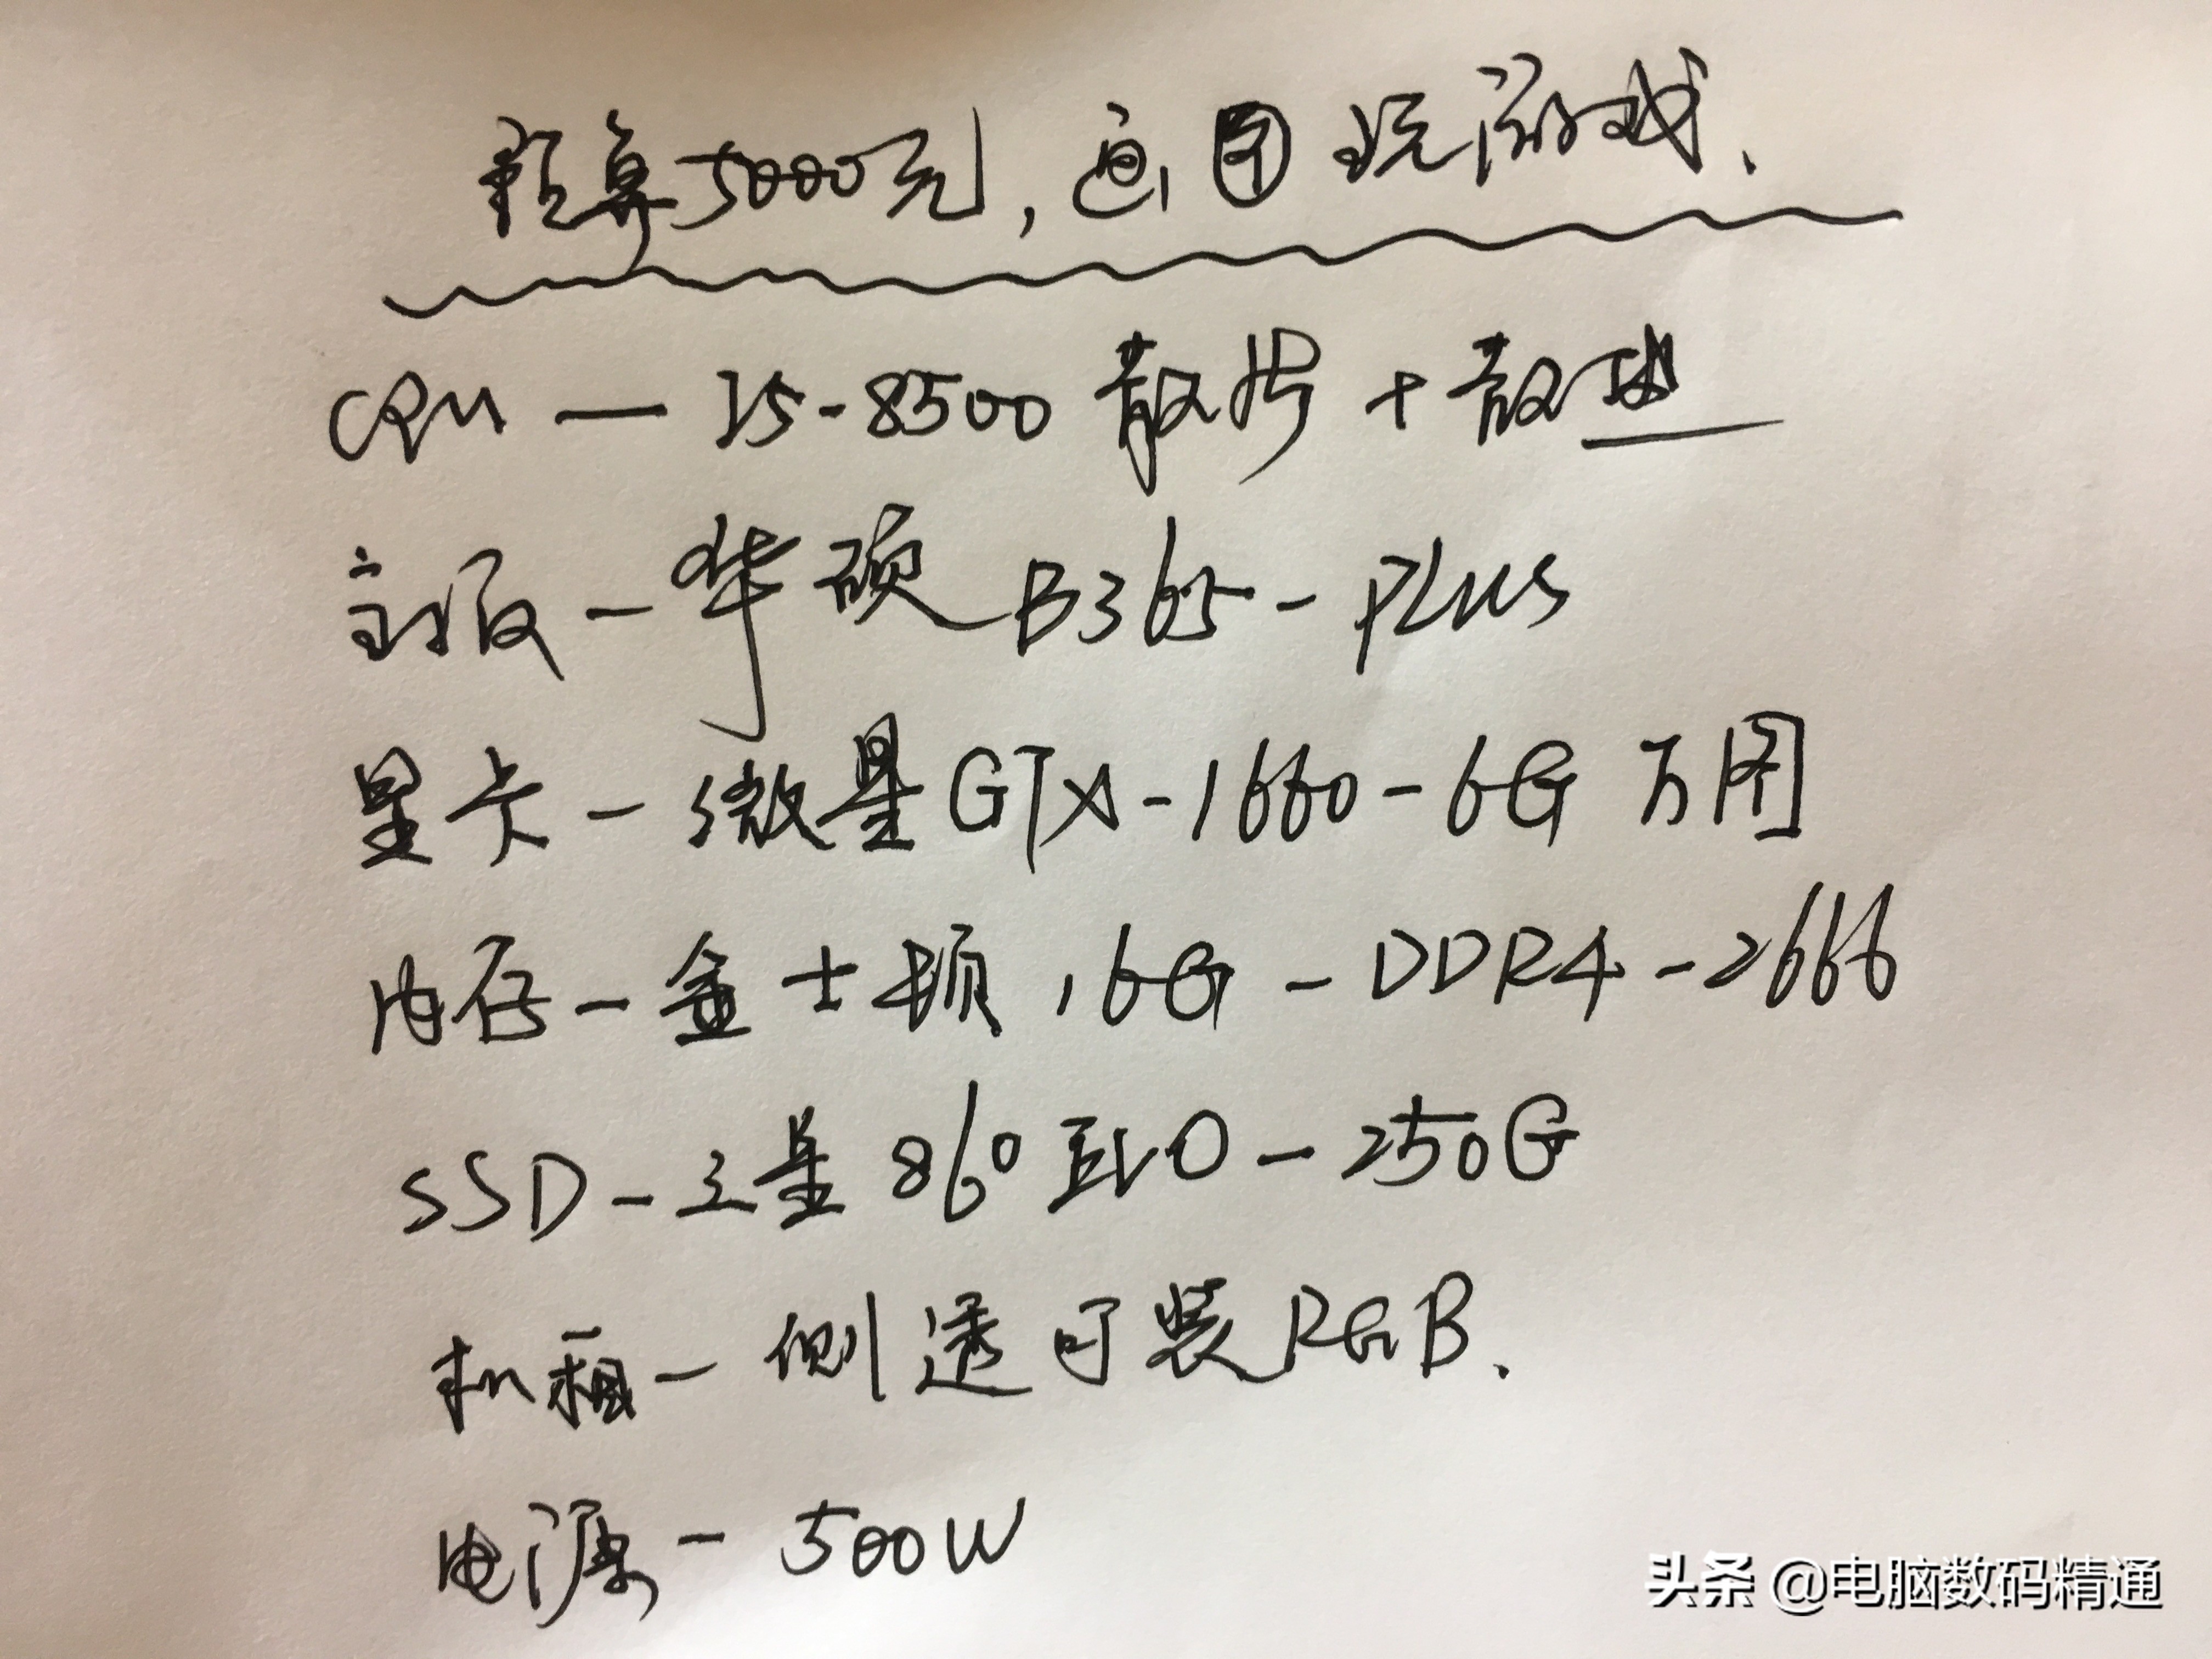 预算5000元,画图玩游戏.
CPU — I5-8500 散片 + 散热
主板 - 华硕B365-PLUS
显卡 - 微星GTX-1660-6G 万图
内存 - 金士顿 16G - DDR4 - 2666
SSD - 三星 860 EVO - 250G
机箱 - 侧透可装RGB.
电源 - 500W
头条 @电脑数码精通